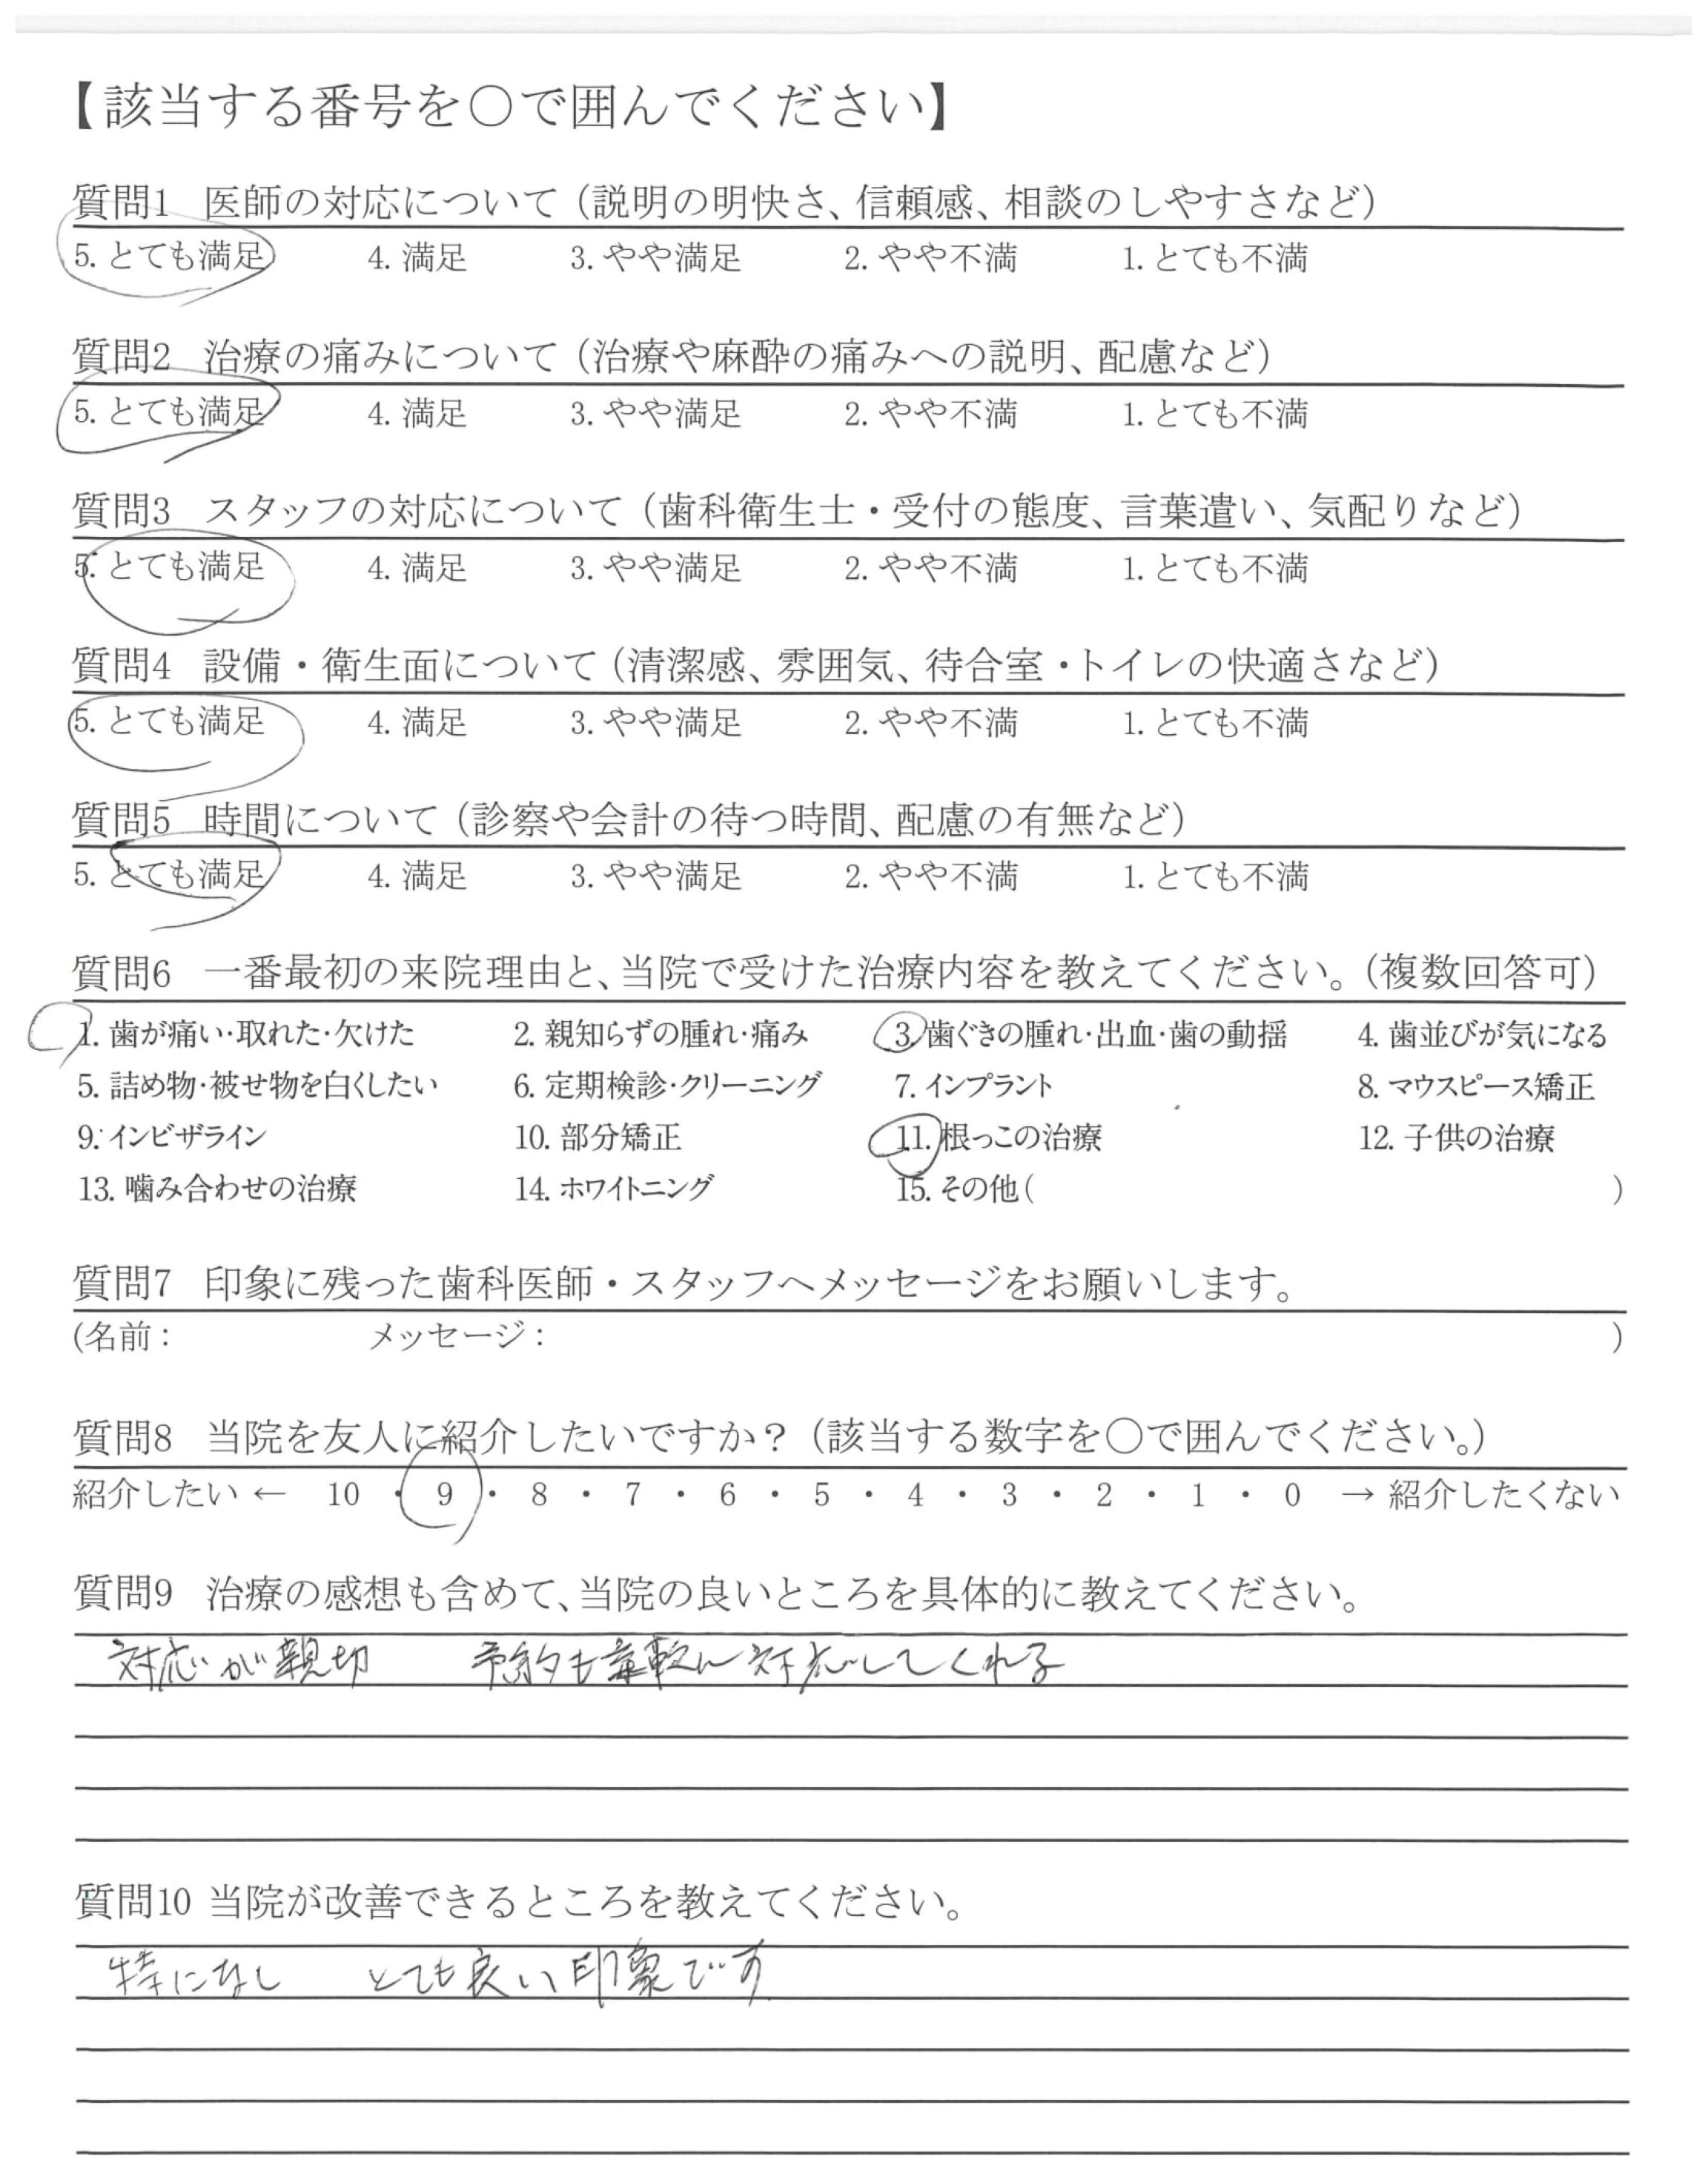 【該当する番号を○で囲んでください】
質問1 医師の対応について（説明の明快さ、信頼感、相談のしやすさなど）
5. とても満足 4. 満足 3. やや満足 2. やや不満 1. とても不満
質問2 治療の痛みについて（治療や麻酔の痛みへの説明、配慮など）
5. とても満足 4. 満足 3. やや満足 2. やや不満 1. とても不満
質問3 スタッフの対応について（歯科衛生士・受付の態度、言葉遣い、気配りなど）
5. とても満足 4. 満足 3. やや満足 2. やや不満 1. とても不満
質問4 設備・衛生面について（清潔感、雰囲気、待合室・トイレの快適さなど）
5. とても満足 4. 満足 3. やや満足 2. やや不満 1. とても不満
質問5 時間について（診察や会計の待つ時間、配慮の有無など）
5. とても満足 4. 満足 3. やや満足 2. やや不満 1. とても不満
質問6 一番最初の来院理由と、当院で受けた治療内容を教えてください。（複数回答可）
1. 歯が痛い・取れた・欠けた 2. 親知らずの腫れ・痛み 3. 歯ぐきの腫れ・出血・歯の動揺 4. 歯並びが気になる
5. 詰め物・被せ物を白くしたい 6. 定期検診・クリーニング 7. インプラント 8. マウスピース矯正
9. インビザライン 10. 部分矯正 11. 根っこの治療 12. 子供の治療
13. 噛み合わせの治療 14. ホワイトニング 15. その他( )
質問7 印象に残った歯科医師・スタッフへメッセージをお願いします。
(名前： メッセージ： )
質問8 当院を友人に紹介したいですか？（該当する数字を○で囲んでください。）
紹介したい ← 10 ・ 9 ・ 8 ・ 7 ・ 6 ・ 5 ・ 4 ・ 3 ・ 2 ・ 1 ・ 0 → 紹介したくない
質問9 治療の感想も含めて、当院の良いところを具体的に教えてください。
対応が親切 予約も柔軟に対応してくれる
質問10 当院が改善できるところを教えてください。
特になし とても良い印象です